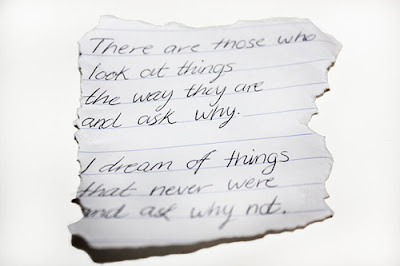 There are those who
look at things
the way they are
and ask why.
I dream of things
that never were
and ask why not.